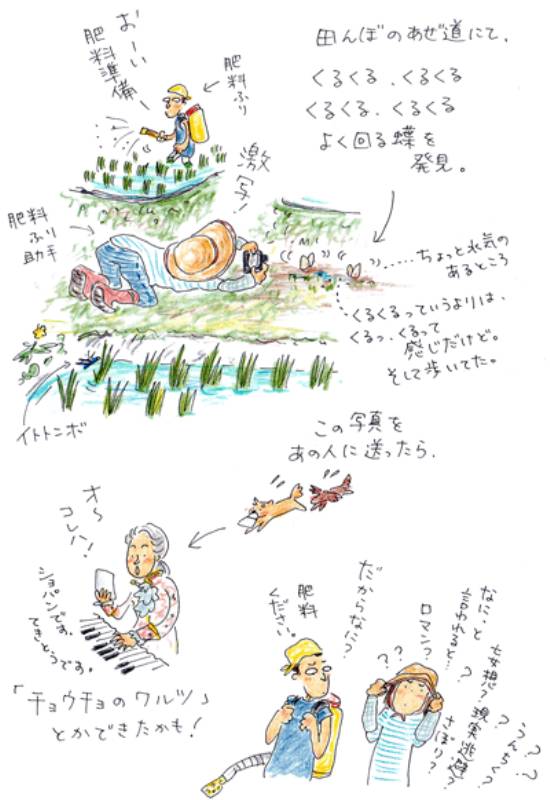 田んぼのあぜ道にて、
くるくる、くるくる
くるくる、くるくる
よく回る蝶を
発見。
おーい
肥料準備ー
肥料ふり
激写!
肥料
ふり
助手
ちょっと水気の
あるところ
くるくるっていうよりは、
くるっ、くるって
感じだけど。
そして歩いてた。
イトトンボ
この写真を
あの人に送ったら、
オ〜
コレハ!
ショパンです。
てきとうです。
「チョウチョのワルツ」
とかできたかも!
肥料
ください。
だからなに?
なに、と
言われると…?
ロマン?
??
妄想?現実逃避?
さぼり?
うんちく?
???